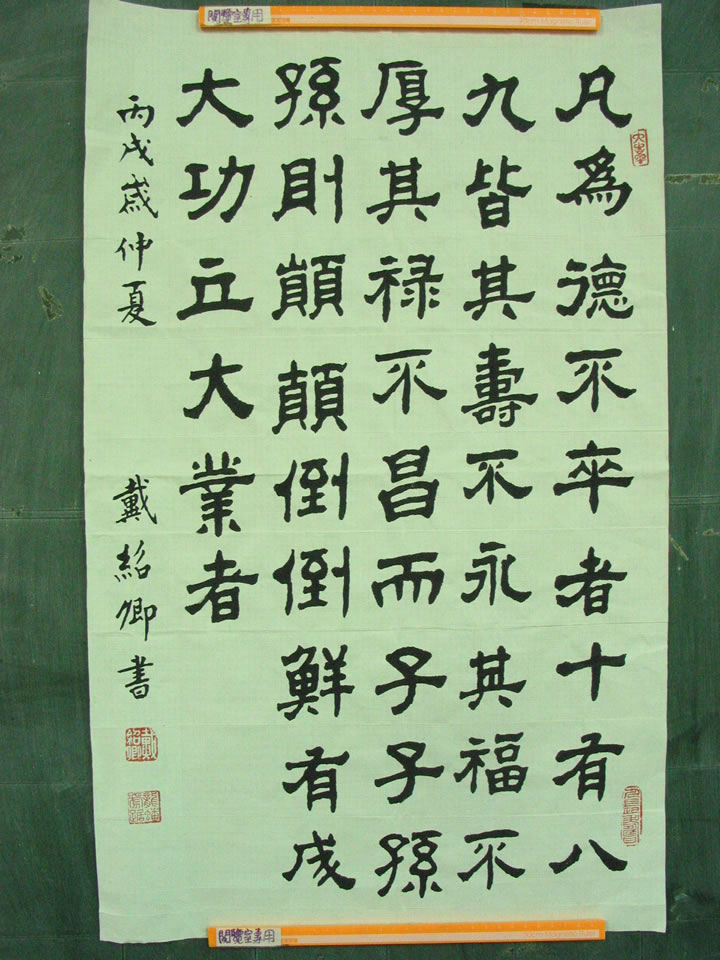 閱覽室專用
凡為德不卒者十有八
九皆其壽不永其福不
厚其禄不昌而子子孫
孫則顛顛倒倒鮮有成
大功立大業者
丙戌歲仲夏 戴紹卿書
閱覽室專用